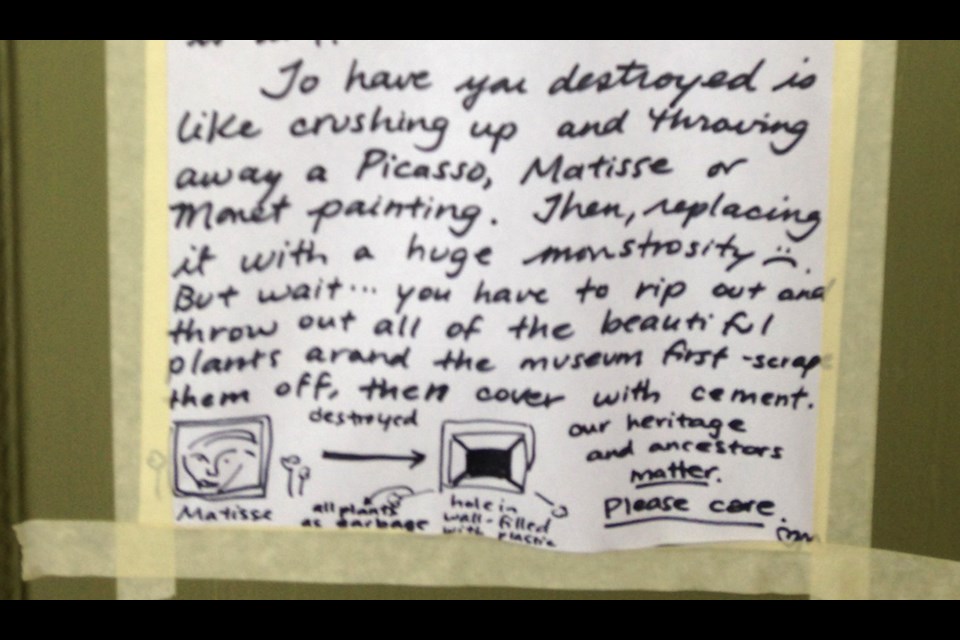 To have you destroyed is
like crushing up and throwing
away a Picasso, Matisse or
Monet painting. Then, replacing
it with a huge monstrosity :(.
But wait... you have to rip out and
throw out all of the beautiful
plants arand the museum first - scrape
them off, then cover with cement.
destroyed
Matisse
all plants
as garbage
hole in
wall-filled
with plastic
our heritage
and ancestors
matter.
Please care.